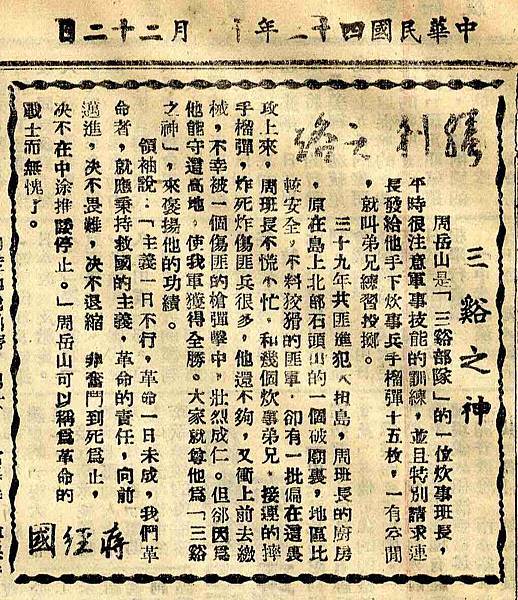 中華民國四十二年十 月二十二日
勝利之路
三谿之神
周岳山是「三谿部隊」的一位炊事班長，
平時很注意軍事技能的訓練，並且特別請求連
長發給他手下炊事兵手榴彈十五枚，一有空閒
，就叫弟兄練習投擲。
三十九年共匪進犯大担島，周班長的廚房
，原在島上北部石頭山的一個破廟裏，地區比
較安全，不料狡猾的匪軍，卻有一批偏在這裏
攻上來，周班長不慌不忙，和幾個炊事弟兄，接連的摔
手榴彈，炸死炸傷匪兵很多，他還不夠，又衝上前去繳
械，不幸被一個傷匪的槍彈擊中，壯烈成仁。但卻因爲
他能守這高地，使我軍獲得全勝。大家就尊他爲「三谿
之神」，來褒揚他的功績。
領袖說：「主義一日不行，革命一日未成，我們革
命者，就應秉持救國的主義，革命的責任，向前
邁進，決不畏難，決不退縮，非奮鬥到死爲止，
決不在中途推諉停止。」周岳山可以稱爲革命的
戰士而無愧了。
蔣經國